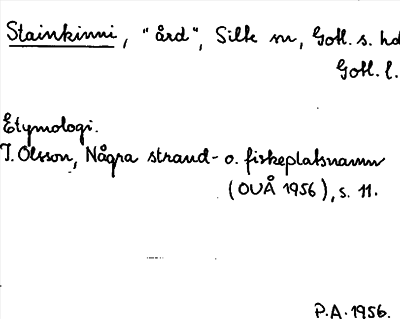 Stainkinni, "ård", Silte sn, Gotl. s. hd
Gotl. l.
Etymologi.
I. Olsson, Några strand- o. fiskeplatsnamn
(OUÅ 1956), s. 11.
P.A. 1956.